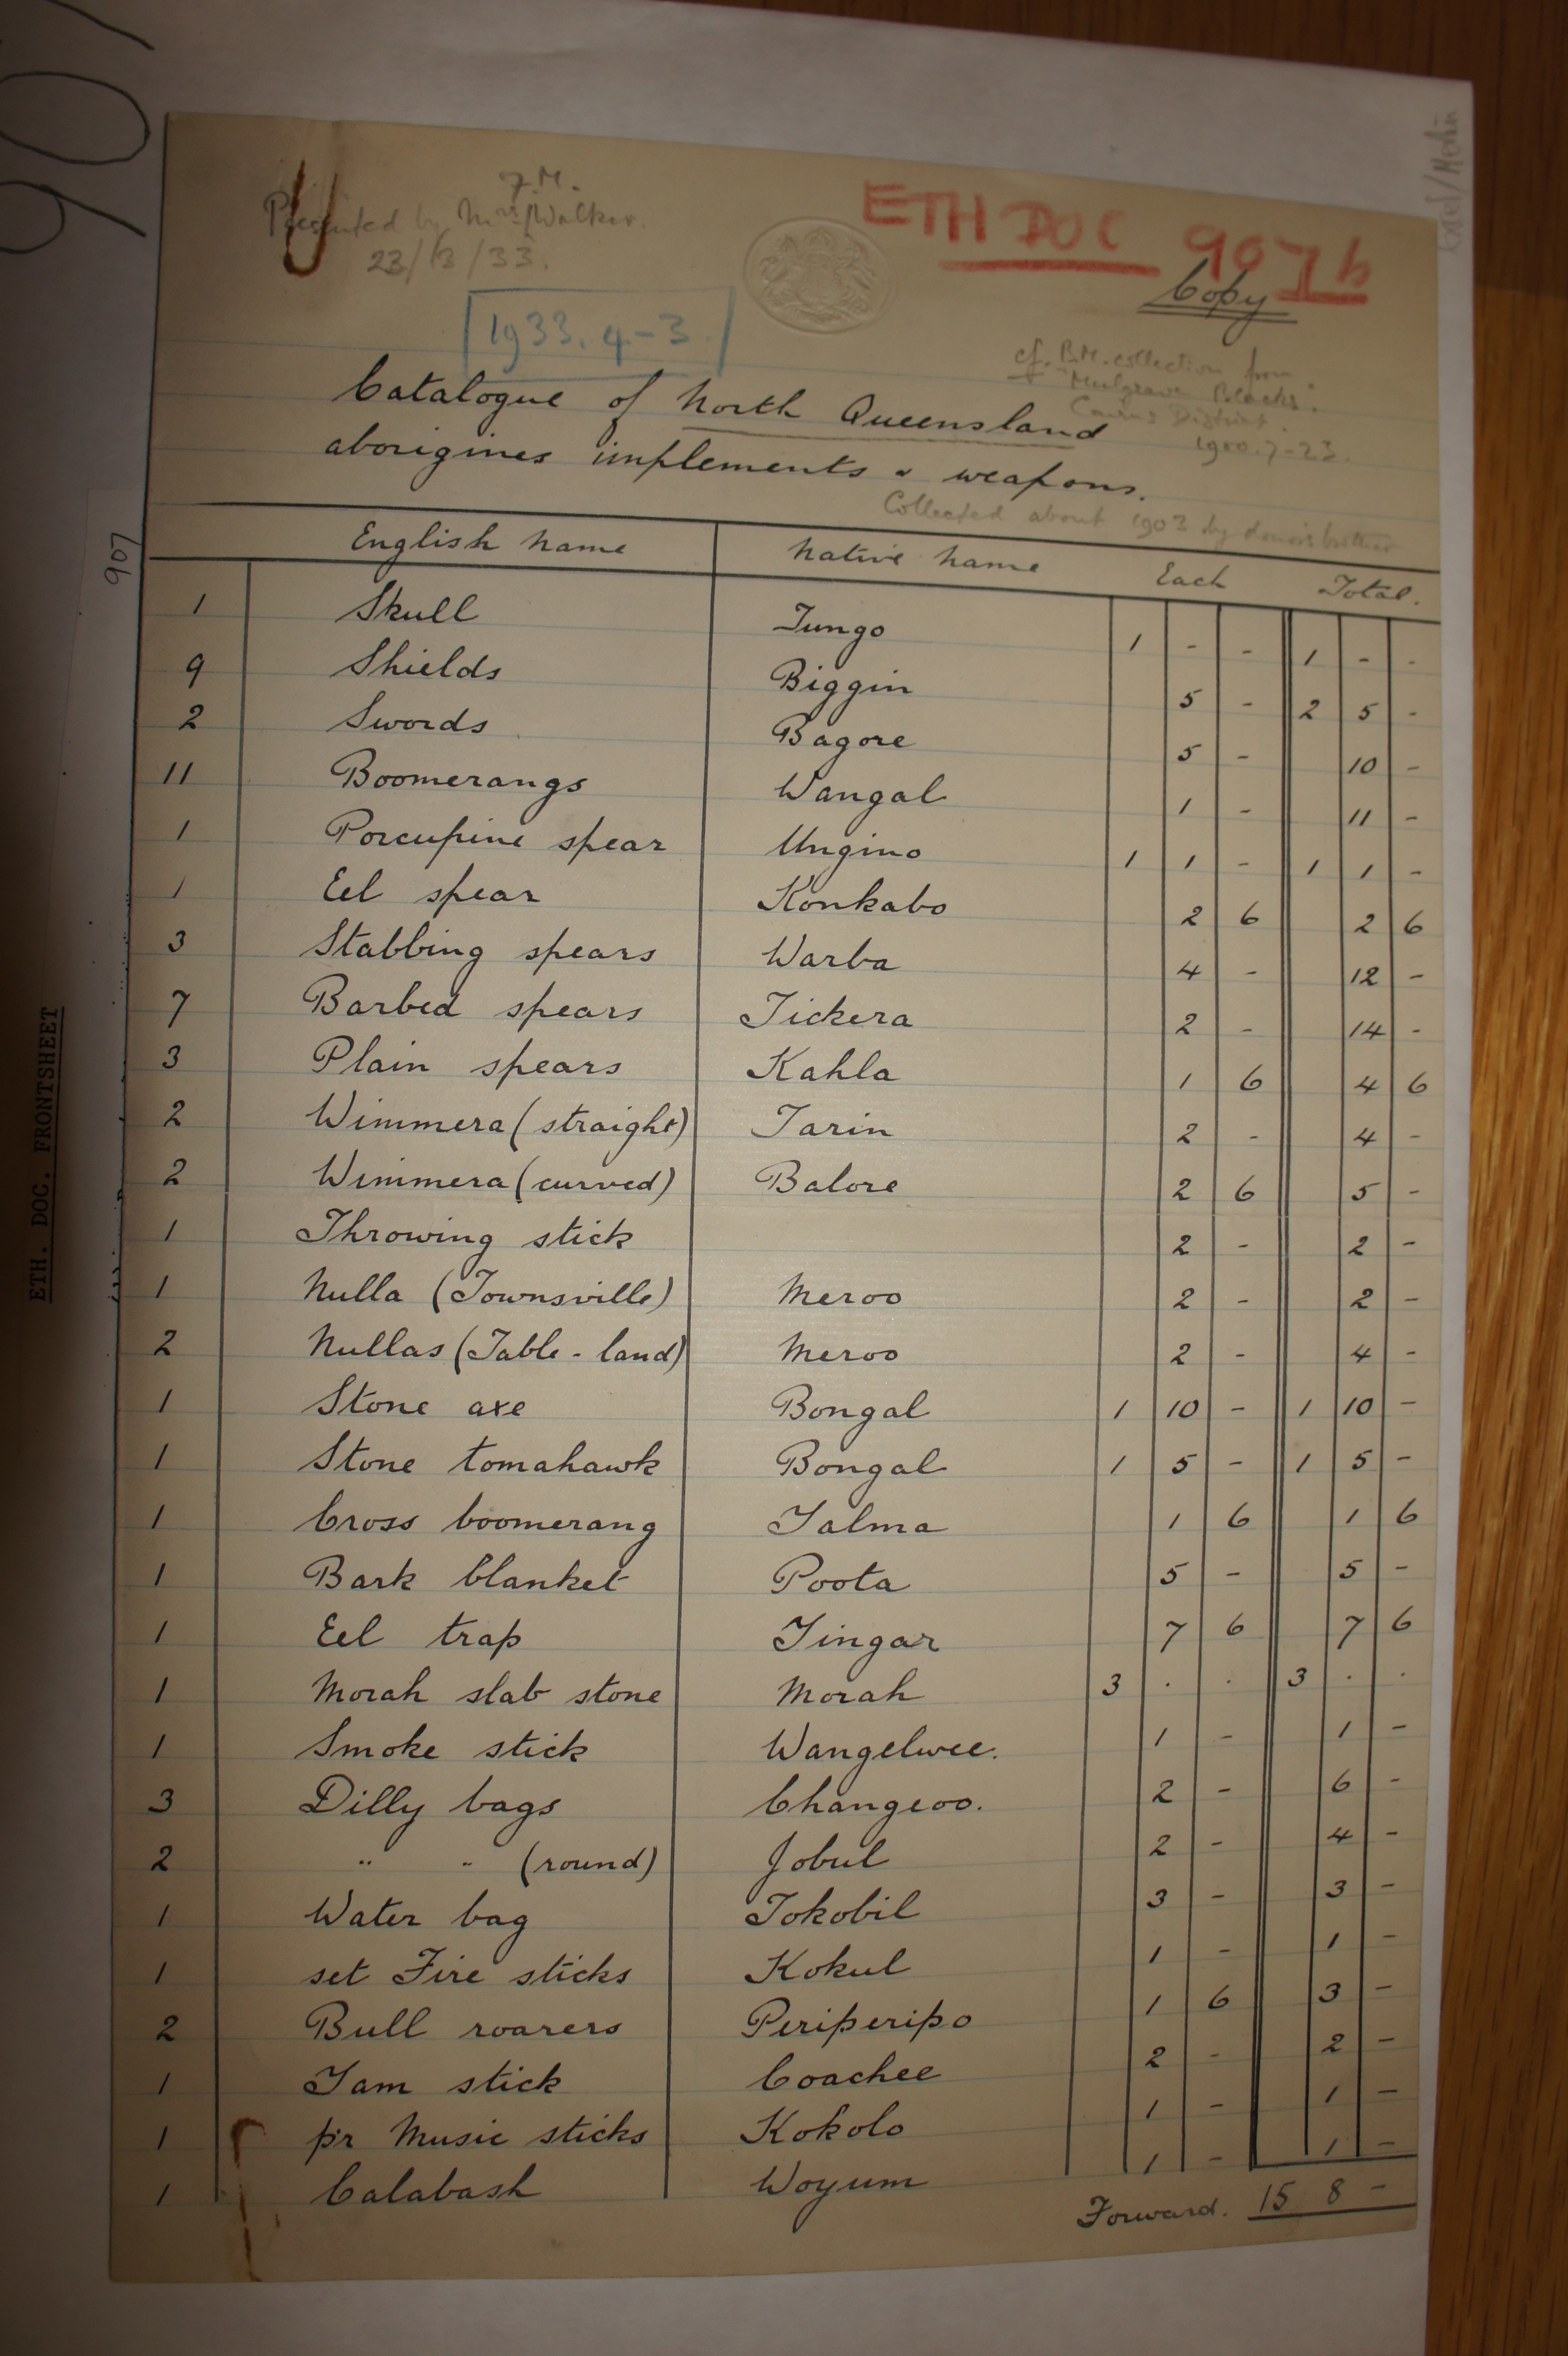 907
J.M.
Presented by Mrs Walker.
23/3/33.
ETH DOC 907b
Copy
1933. 4-3
cf. B.M. collection from
"Mulgrave Blacks".
Cairns District.
1900.7-23.
Catalogue of North Queensland
aborigines implements & weapons.
Collected about 1903 by donor's brother
907
ETH. DOC. FRONTSHEET
English name Native name Each Total.
1 Skull Jungo 1 - - 1 - -
9 Shields Biggin 5 - 2 5 -
2 Swords Bagore 5 - 10 -
11 Boomerangs Wangal 1 - 11 -
1 Porcupine spear Ungino 1 1 - 1 1 -
1 Eel spear Konkabo 2 6 2 6
3 Stabbing spears Warba 4 - 12 -
7 Barbed spears Tickera 2 - 14 -
3 Plain spears Kahla 1 6 4 6
2 Wimmera (straight) Tarin 2 - 4 -
2 Wimmera (curved) Balore 2 6 5 -
1 Throwing stick 2 - 2 -
1 Nulla (Townsville) Meroo 2 - 2 -
2 Nullas (Table-land) Meroo 2 - 4 -
1 Stone axe Bongal 1 10 - 1 10 -
1 Stone tomahawk Bongal 1 5 - 1 5 -
1 Cross boomerang Yalma 1 6 1 6
1 Bark blanket Poota 5 - 5 -
1 Eel trap Yingar 7 6 7 6
1 Morah slab stone Morah 3 . . 3 . .
1 Smoke stick Wangelwee. 1 - 1 -
3 Dilly bags Changeoo. 2 - 6 -
2 " " (round) Jobul 2 - 4 -
1 Water bag Tokobil 3 - 3 -
1 set Fire sticks Kokul 1 - 1 -
2 Bull roarers Periperipo 1 6 3 -
1 Yam stick Coachee 2 - 2 -
1 pr Music sticks Kokolo 1 - 1 -
1 Calabash Woyum 1 - 1 -
Forward. 15 8 -